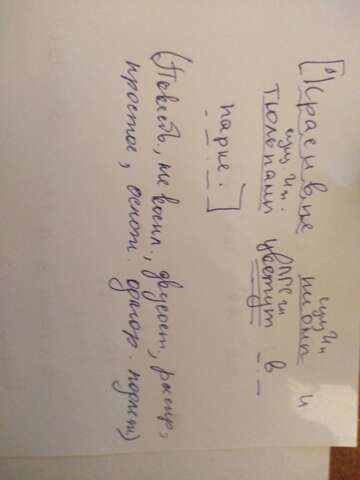 сущ Ип
[О Красивые пионы и
сущ Ип. глаг
тюльпаны цветут в
парке.]
(Повеств., не воскл., двусост., распр.,
простое, ослож. однор. подлеж)